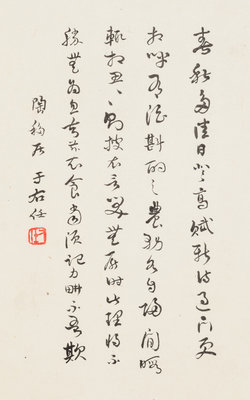 春秋多佳日登高賦新詩過門更
相呼有酒斟酌之農務各自歸閒暇
輒相思々則披衣言笑無厭時此理將不
勝無為忽去茲衣食當須記力耕不吾欺
陶移居 于右任